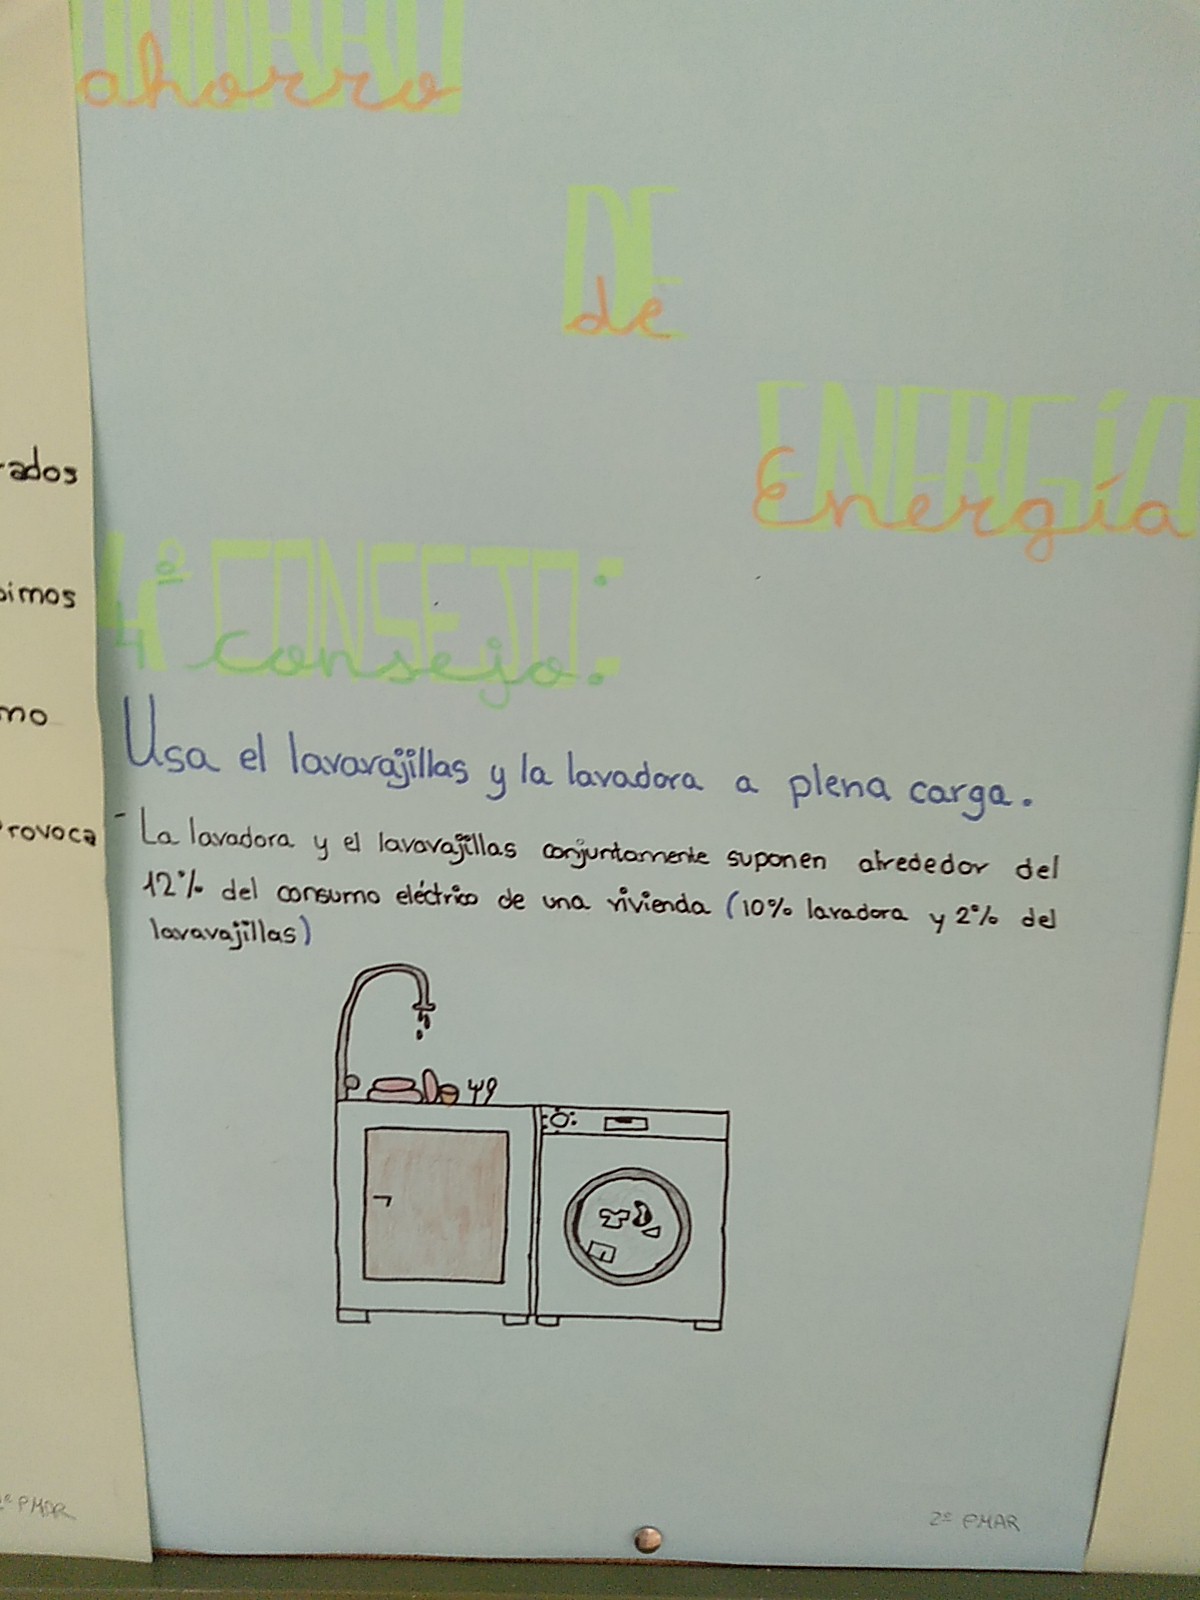 AHORRO
ahorro
DE
de
ENERGÍA
Energía
4º CONSEJO:
4 consejo.
Usa el lavavajillas y la lavadora a plena carga.
- La lavadora y el lavavajillas conjuntamente suponen alrededor del
12% del consumo eléctrico de una vivienda (10% lavadora y 2% del
lavavajillas)
2º PMAR
rados
bimos
mo
Provoca
2º PMAR